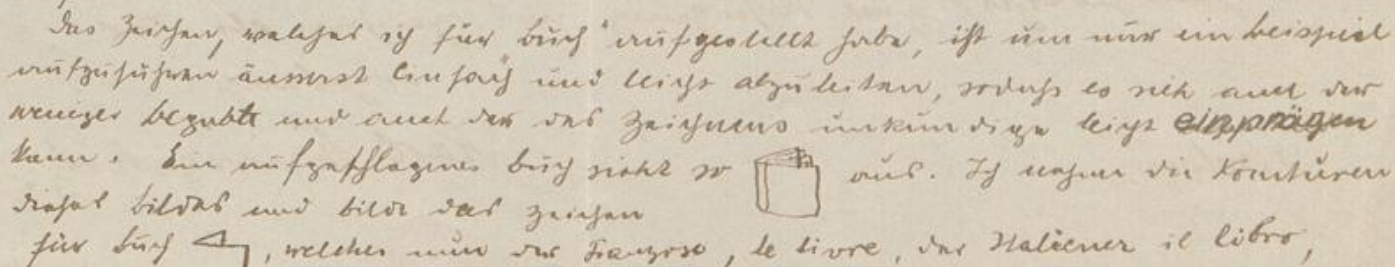 Das Zeichen, welches ich für „Buch“ aufgestellt habe, ist um nur ein beispiel
aufzuführen äusserst einfach und leicht abzuleiten, sodass es sich auch der
weniger begabte und auch der des Zeichnens unkundige leicht einprägen
kann. Ein aufgeschlagenes buch sieht so aus. Ich nehme die Konturen
dieses bildes und bilde das zeichen
für buch , welches nun der Franzose, le livre, der Italiener il libro,